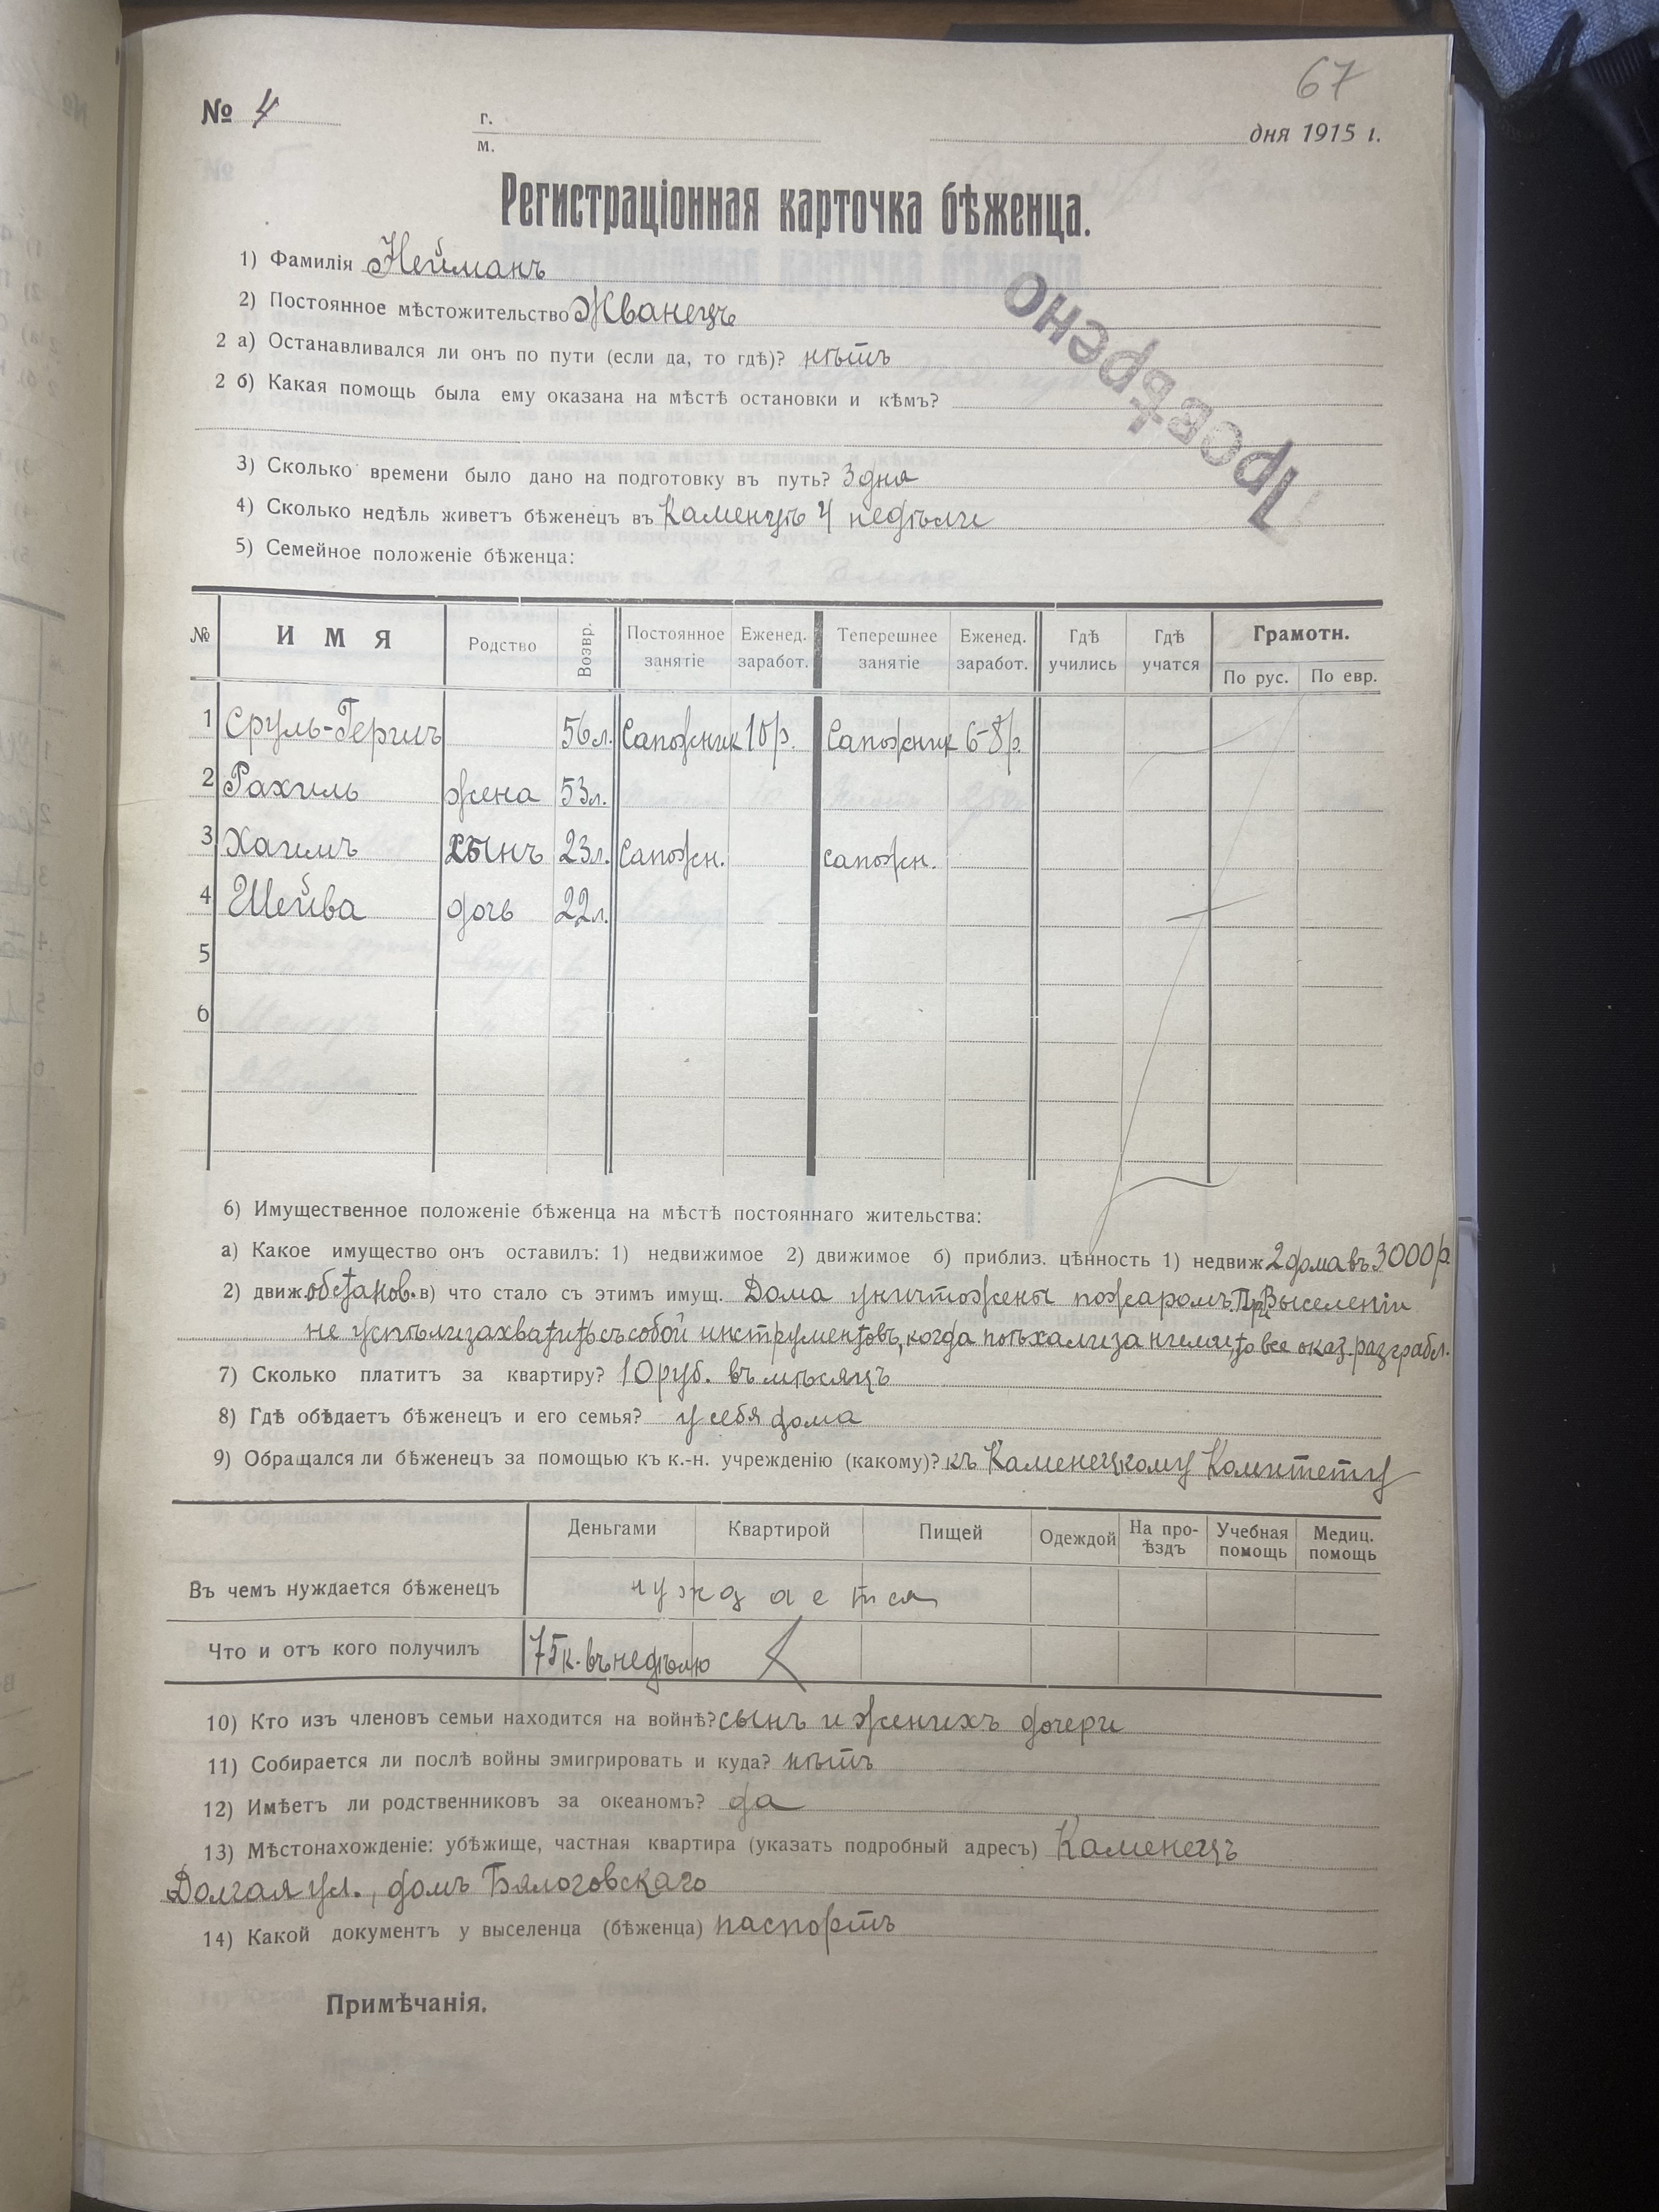 67
№ 4
г.
м.
дня 1915 г.
Регистраціонная карточка бѣженца.
1) Фамилія Нейманъ
2) Постоянное мѣстожительство Жванецъ
2 а) Останавливался ли онъ по пути (если да, то гдѣ)? нѣтъ
2 б) Какая помощь была ему оказана на мѣстѣ остановки и кѣмъ?
Провѣрено
3) Сколько времени было дано на подготовку въ путь? 3 дня
4) Сколько недѣль живетъ бѣженецъ въ Каменцѣ 4 недѣли
5) Семейное положеніе бѣженца:
№ ИМЯ Родство Возвр. Постоянное занятіе Еженед. заработ. Теперешнее занятіе Еженед. заработ. Гдѣ учились Гдѣ учатся Грамотн. По рус. По евр.
1 Сруль-Гершъ 56 л. Сапожник 10 р. Сапожник 6-8 р.
2 Рахиль жена 53 л.
3 Хаимъ сынъ 23 л. сапожн. сапожн.
4 Шейва дочь 22 л.
5
6
6) Имущественное положеніе бѣженца на мѣстѣ постояннаго жительства:
а) Какое имущество онъ оставилъ: 1) недвижимое 2) движимое б) приблиз. цѣнность 1) недвиж 2 дома въ 3000 р.
2) движ. обстанов. в) что стало съ этимъ имущ. Дома уничтожены пожаромъ. При Выселеніи
не успѣли захватить съ собой инструментовъ, когда поѣхали за ними, то все оказ. разграбл.
7) Сколько платитъ за квартиру? 10 руб. въ мѣсяцъ
8) Гдѣ обѣдаетъ бѣженецъ и его семья? у себя дома
9) Обращался ли бѣженецъ за помощью къ к.-н. учрежденію (какому)? къ Каменецкому Комитету
Деньгами Квартирой Пищей Одеждой На про-ѣздъ Учебная помощь Медиц. помощь
Въ чемъ нуждается бѣженецъ нуждается
Что и отъ кого получилъ 75 к. въ недѣлю
10) Кто изъ членовъ семьи находится на войнѣ? сынъ и женихъ дочери
11) Собирается ли послѣ войны эмигрировать и куда? нѣтъ
12) Имѣетъ ли родственниковъ за океаномъ? да
13) Мѣстонахожденіе: убѣжище, частная квартира (указать подробный адресъ) Каменецъ
Долгая ул., домъ Бялоговскаго
14) Какой документъ у выселенца (бѣженца) паспортъ
Примѣчанія.